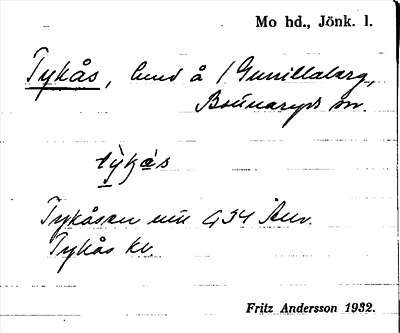 Mo hd., Jönk. l.
Tykås, lund å / Gunillaberg,
Bottnaryds sn.
tỳkas
Tykåsen nu G34 Anv.
Tykås kv.
Fritz Andersson 1932.